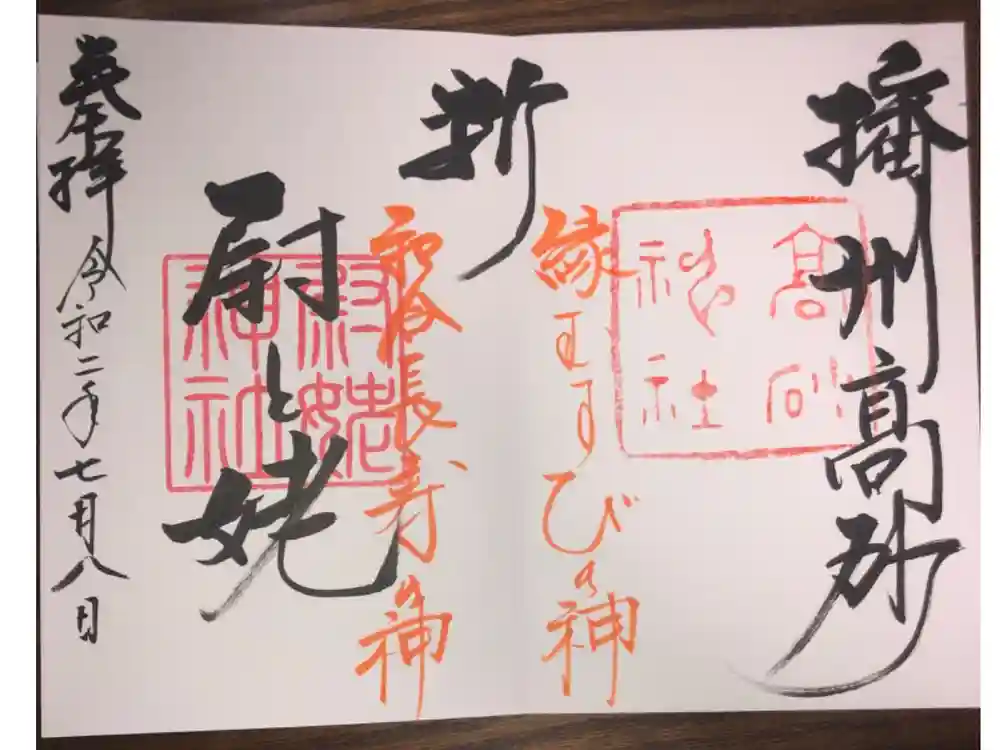 播州高砂
高砂
神社
縁むすびの神
祈
尉と姥
尉姥
神社
奉拝 令和二年七月八日